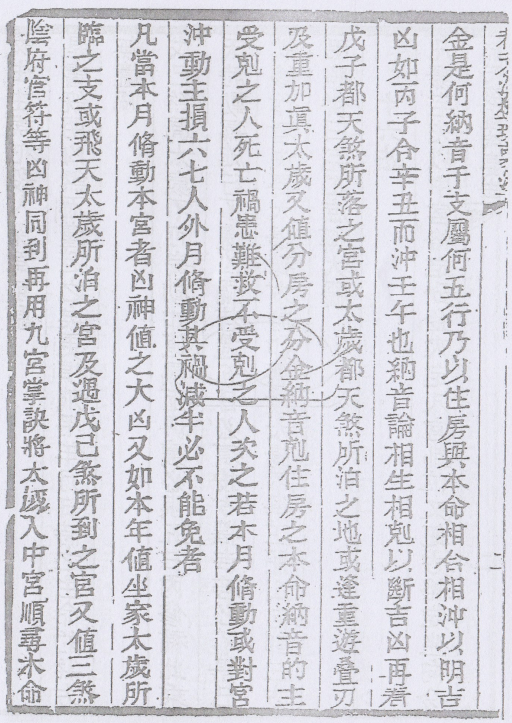 金是何納音干支屬何五行乃以住房與本命相合相沖以明吉
凶如丙子合辛丑而沖壬午也納音論相生相剋以斷吉凶再看
戊子都天煞所落之宮或太歲都天煞所泊之地或逢重遊疊刃
及重加真太歲又值分房之分金納音剋住房之本命納音的主
受剋之人死亡禍患難救不受剋之人次之若本月脩動或對宮
沖動主損六七人外月脩動其禍減半必不能免者
凡當本月脩動本宮者凶神值之大凶又如本年值坐家太歲所
臨之支或飛天太歲所泊之宮及遇戊己煞所到之宮又值三煞
陰府官符等凶神同到再用九宮掌訣將太歲入中宮順尋本命